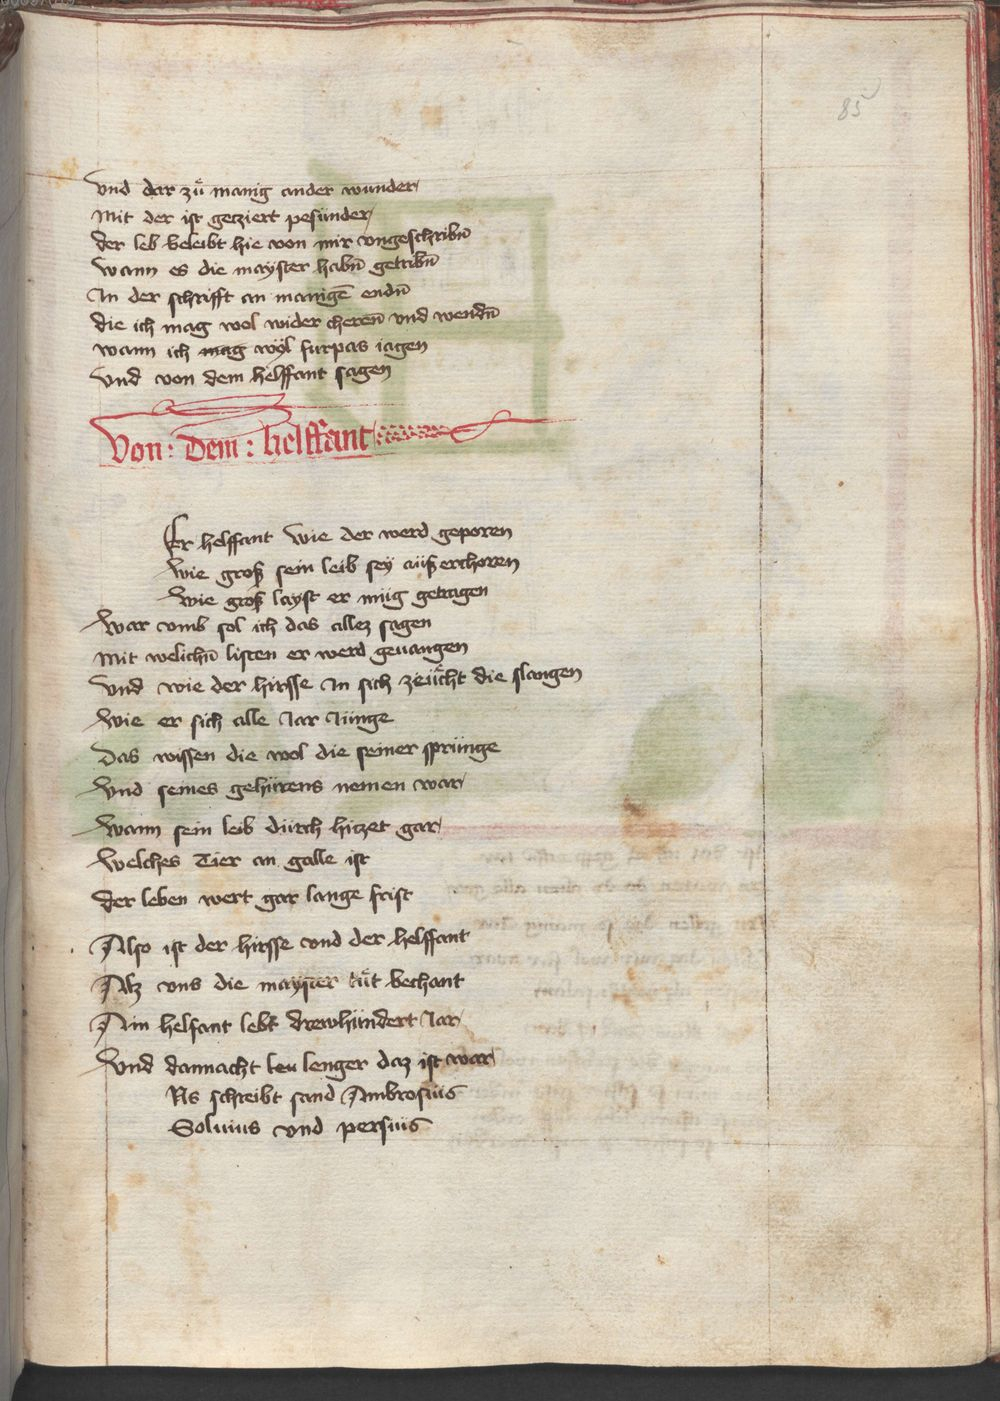 85
vnd dar zů manig ander wunder
Mit der ist geziert pesunder
der leb beleibt hie von mir vngeschribn̄
wann es die mayster habn̄ getribn̄
In der schrifft an manigē endn̄
die ich mag wol wider cheren̄ vnd wendn̄
wann ich mag wyl furpas iagen
vnd von dem helffant sagen
Von : Dem : helffant
Er helffant wie der werd geporen
wie groß sein leib sey aüßerchoren
wie groß layst er müg getragen
war vmb sol ich das allez sagen
Mit welichn̄ listen er werd geuangen
vnd wie der hirsse In sich zeücht die slangen
wie er sich alle Jar Jünge
Das wissen die wol die seiner sprünge
vnd seines gehürens nemen war
wann sein leib dürch hiczet gar
welches Tier an galle ist
Der leben wert gar lange frist
Also ist der hirsse vnd der helffant
Alz vns die mayster tůt bechant
Ain helfant lebt drewhündert Jar
vnd dannacht leu lenger daz ist war
As schreibt sand Ambrosius
Soluius vnd persius